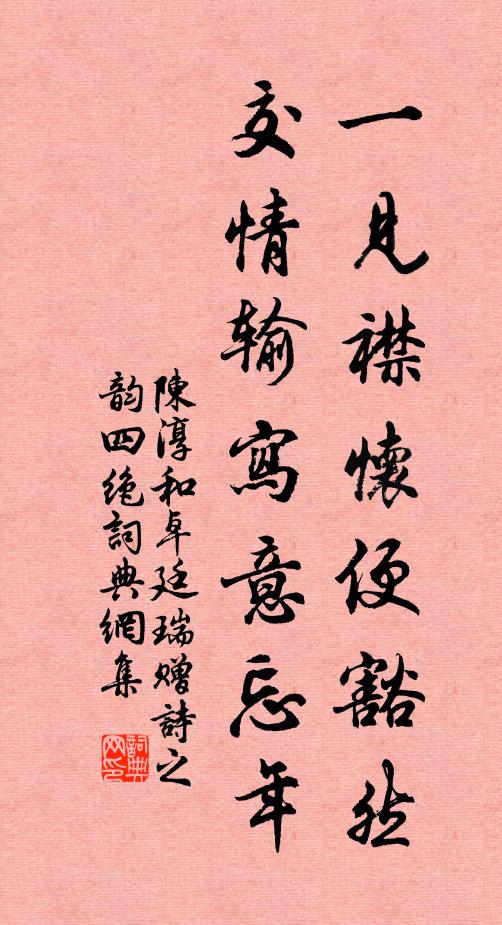 一見襟懷便豁然
交情输寫意忘年
陳淳和卓廷瑞贈詩之
韵四絶詞典網集
詞典网印